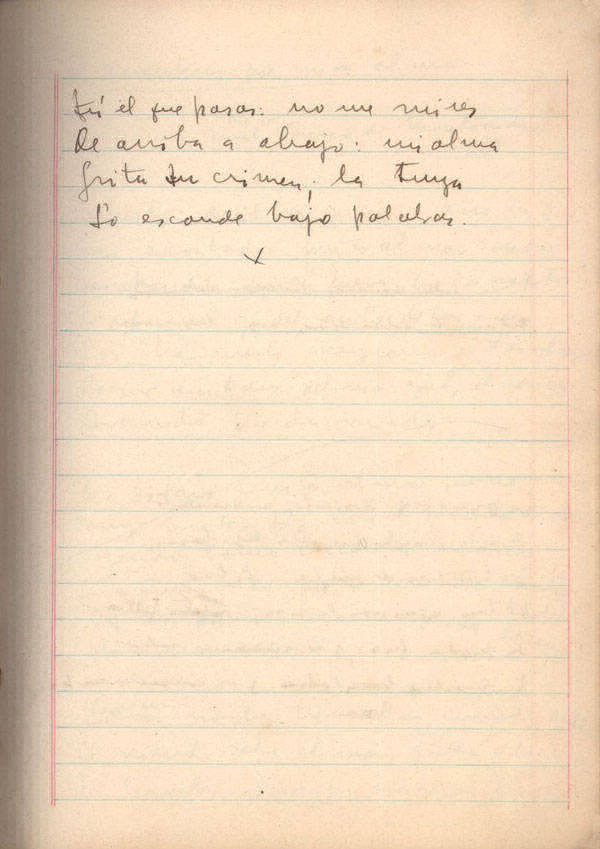 tú el que pasas: no me mires
De arriba a abajo: mi alma
grita su crimen; la tuya
Lo esconde bajo palabras.
x